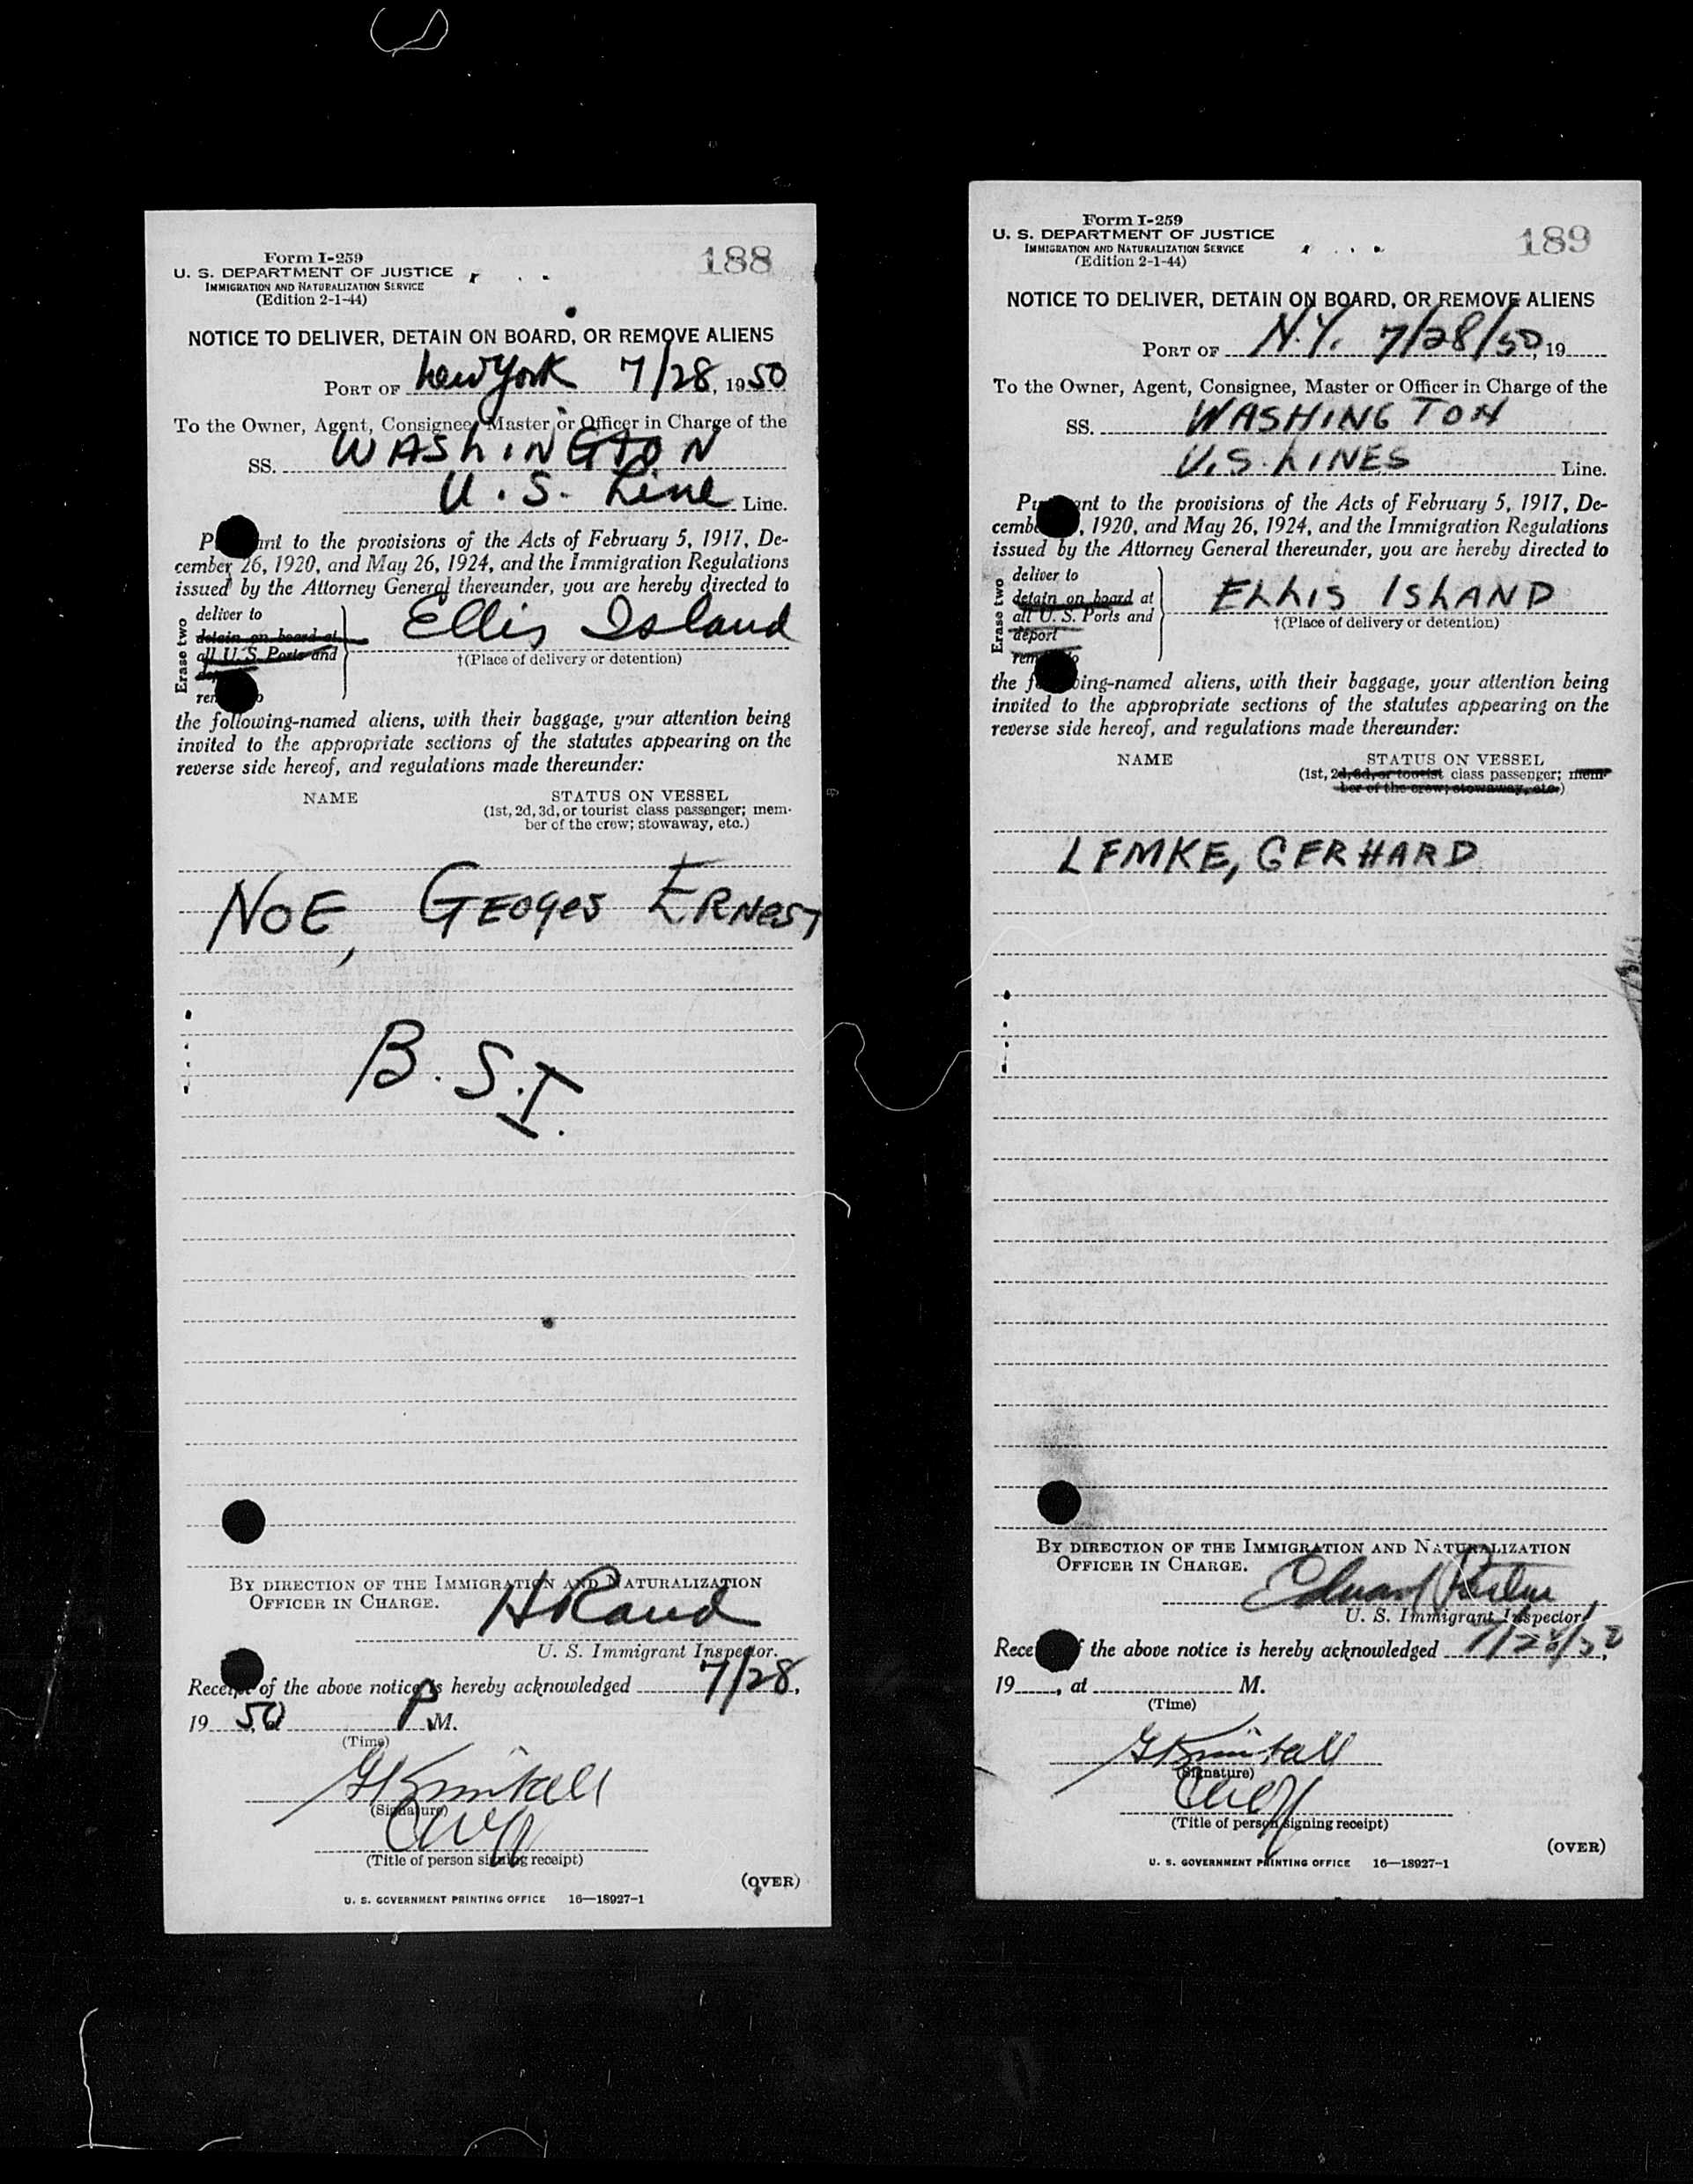 188
Form I-259
U. S. DEPARTMENT OF JUSTICE
IMMIGRATION AND NATURALIZATION SERVICE
(Edition 2-1-44)
NOTICE TO DELIVER, DETAIN ON BOARD, OR REMOVE ALIENS
PORT OF New York 7/28, 1950
To the Owner, Agent, Consignee, Master or Officer in Charge of the
SS. WAShINGTON
U.S. Line Line.
P ant to the provisions of the Acts of February 5, 1917, De-
cember 26, 1920, and May 26, 1924, and the Immigration Regulations
issued by the Attorney General thereunder, you are hereby directed to
Erase two
deliver to
detain on board at
all U. S. Ports and
Ellis Island
†(Place of delivery or detention)
the following-named aliens, with their baggage, your attention being
invited to the appropriate sections of the statutes appearing on the
reverse side hereof, and regulations made thereunder:
NAME STATUS ON VESSEL
(1st, 2d, 3d, or tourist class passenger; mem-
ber of the crew; stowaway, etc.)
NOE, GEOgeS ERNeST
B.S.I.
BY DIRECTION OF THE IMMIGRATION AND NATURALIZATION
OFFICER IN CHARGE.
H Rand
U. S. Immigrant Inspector.
Receipt of the above notice is hereby acknowledged 7/28,
19 50 P M.
(Time)
G Kimball
(Signature)
(Title of person signing receipt)
(OVER)
U. S. GOVERNMENT PRINTING OFFICE 16—18927-1
189
Form I-259
U. S. DEPARTMENT OF JUSTICE
IMMIGRATION AND NATURALIZATION SERVICE
(Edition 2-1-44)
NOTICE TO DELIVER, DETAIN ON BOARD, OR REMOVE ALIENS
PORT OF N.Y. 7/28/50, 19
To the Owner, Agent, Consignee, Master or Officer in Charge of the
SS. WASHINGTON
U.S. LINES Line.
Pu ant to the provisions of the Acts of February 5, 1917, De-
cemb , 1920, and May 26, 1924, and the Immigration Regulations
issued by the Attorney General thereunder, you are hereby directed to
Erase two
deliver to
detain on board at
all U. S. Ports and
deport
ELLIS ISLAND
†(Place of delivery or detention)
the f wing-named aliens, with their baggage, your attention being
invited to the appropriate sections of the statutes appearing on the
reverse side hereof, and regulations made thereunder:
NAME STATUS ON VESSEL
(1st, 2d, 3d, or tourist class passenger; mem-
ber of the crew; stowaway, etc.)
LEMKE, GERHARD
BY DIRECTION OF THE IMMIGRATION AND NATURALIZATION
OFFICER IN CHARGE.
Edward
U. S. Immigrant Inspector.
Rece f the above notice is hereby acknowledged 7/28/50,
19 , at M.
(Time)
G Kimball
(Signature)
(Title of person signing receipt)
(OVER)
U. S. GOVERNMENT PRINTING OFFICE 16—18927-1